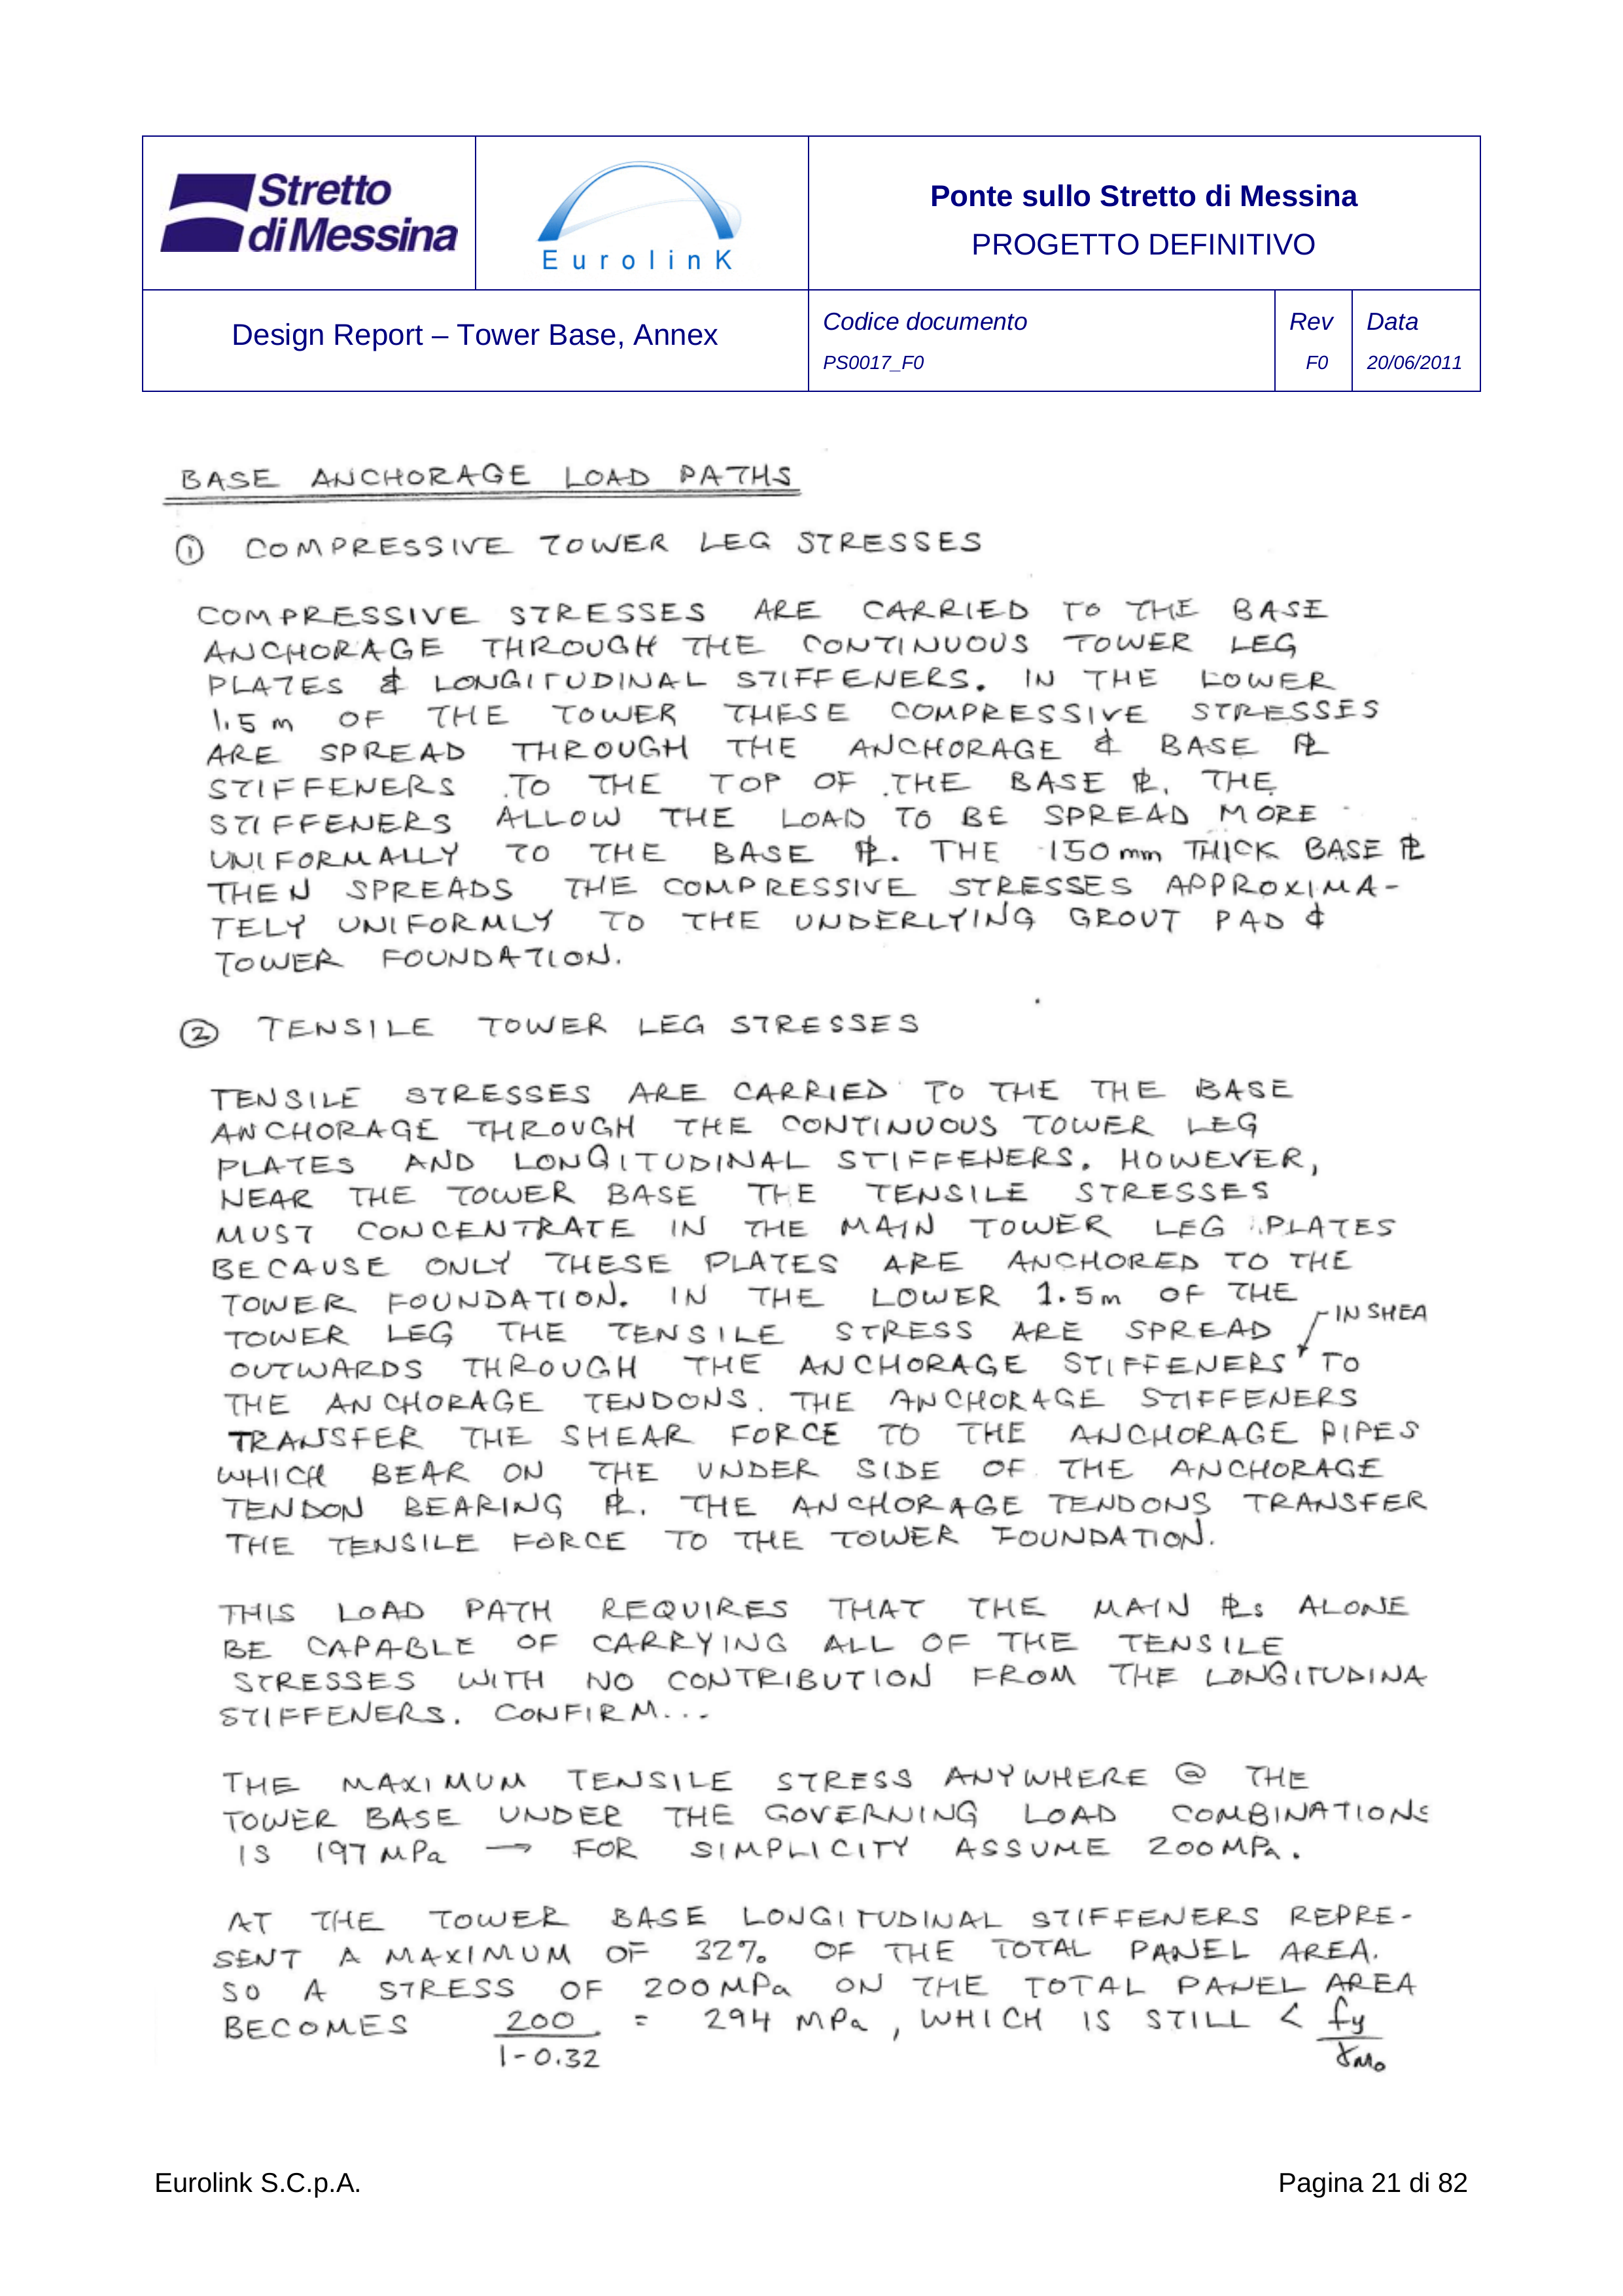 Stretto
di Messina
EurolinK
Ponte sullo Stretto di Messina
PROGETTO DEFINITIVO
Design Report – Tower Base, Annex
Codice documento
PS0017_F0
Rev
F0
Data
20/06/2011
BASE ANCHORAGE LOAD PATHS
① COMPRESSIVE TOWER LEG STRESSES
COMPRESSIVE STRESSES ARE CARRIED TO THE BASE
ANCHORAGE THROUGH THE CONTINUOUS TOWER LEG
PLATES & LONGITUDINAL STIFFENERS. IN THE LOWER
1.5 m OF THE TOWER THESE COMPRESSIVE STRESSES
ARE SPREAD THROUGH THE ANCHORAGE & BASE PL
STIFFENERS TO THE TOP OF THE BASE PL. THE
STIFFENERS ALLOW THE LOAD TO BE SPREAD MORE
UNIFORMALLY TO THE BASE PL. THE 150 mm THICK BASE PL
THEN SPREADS THE COMPRESSIVE STRESSES APPROXIMA-
TELY UNIFORMLY TO THE UNDERLYING GROUT PAD &
TOWER FOUNDATION.
② TENSILE TOWER LEG STRESSES
TENSILE STRESSES ARE CARRIED TO THE THE BASE
ANCHORAGE THROUGH THE CONTINUOUS TOWER LEG
PLATES AND LONGITUDINAL STIFFENERS. HOWEVER,
NEAR THE TOWER BASE THE TENSILE STRESSES
MUST CONCENTRATE IN THE MAIN TOWER LEG PLATES
BECAUSE ONLY THESE PLATES ARE ANCHORED TO THE
TOWER FOUNDATION. IN THE LOWER 1.5m OF THE
TOWER LEG THE TENSILE STRESS ARE SPREAD
IN SHEA
OUTWARDS THROUGH THE ANCHORAGE STIFFENERS TO
THE ANCHORAGE TENDONS. THE ANCHORAGE STIFFENERS
TRANSFER THE SHEAR FORCE TO THE ANCHORAGE PIPES
WHICH BEAR ON THE UNDER SIDE OF THE ANCHORAGE
TENDON BEARING PL. THE ANCHORAGE TENDONS TRANSFER
THE TENSILE FORCE TO THE TOWER FOUNDATION.
THIS LOAD PATH REQUIRES THAT THE MAIN PLs ALONE
BE CAPABLE OF CARRYING ALL OF THE TENSILE
STRESSES WITH NO CONTRIBUTION FROM THE LONGITUDINA
STIFFENERS. CONFIRM...
THE MAXIMUM TENSILE STRESS ANYWHERE @ THE
TOWER BASE UNDER THE GOVERNING LOAD COMBINATIONS
IS 197 MPa → FOR SIMPLICITY ASSUME 200MPa.
AT THE TOWER BASE LONGITUDINAL STIFFENERS REPRE-
SENT A MAXIMUM OF 32% OF THE TOTAL PANEL AREA.
SO A STRESS OF 200MPa ON THE TOTAL PANEL AREA
BECOMES 200 / 1-0.32 = 294 MPa, WHICH IS STILL < fy / γM0
Eurolink S.C.p.A.
Pagina 21 di 82